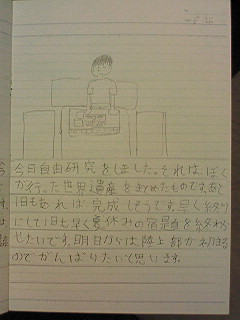 今日自由研究をしました。それはぼく
が行った世界遺産をまとめたものです。あと
1日もあれば完成しそうです。早く終り
にして1日も早く夏休みの宿題を終わら
せたいです。明日からは陸上部が初まる
のでがんばりたいと思います。